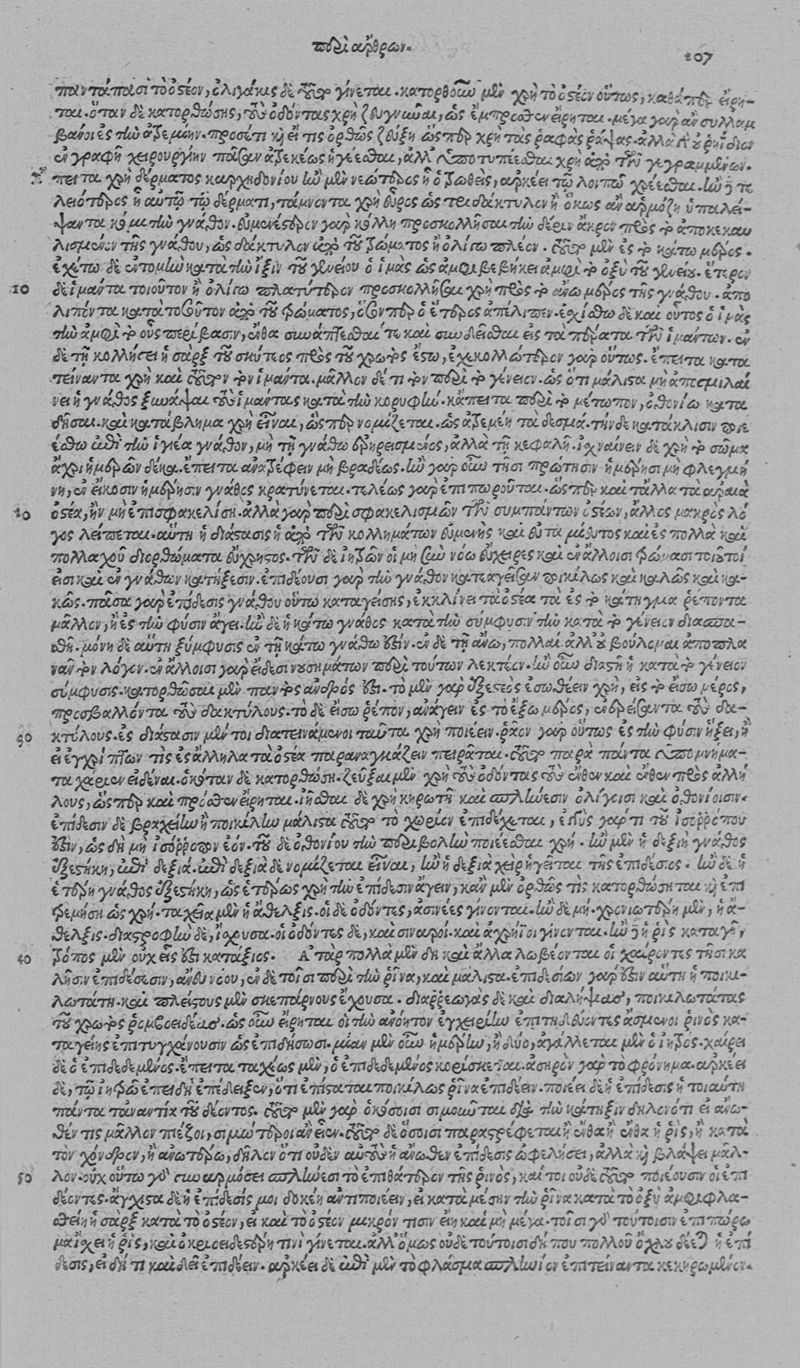 περὶ ἄρθρων.
107
παντάπασι τὸ ὀστέον, ὀλιγάκις δὲ τοῦτο γίνεται. κατορθοῦν μὲν χρὴ τὸ ὀστέον οὕτως, καθάπερ εἴρη-
ται. ὅταν δὲ κατορθώσῃς, τοὺς ὀδόντας χρὴ ζευγνύναι, ὡς ἔμπροσθεν εἴρηται. μέγα γὰρ ἂν συλλαμ
βάνοι ἐς τὴν ἀτρεμίην. προσέτι καὶ εἴ τις ὀρθῶς ζεύξῃ ὥσπερ χρὴ τὰς ῥαφὰς ῥάψας. ἀλλὰ γὰρ οὐ ῥηΐδιον
ἐν γραφῇ χειρουργίην πᾶσαν ἀτρεκέως ἡγέεσθαι, ἀλλ' ὑποτυπέεσθαι χρὴ ἀπὸ τῶν γεγραμμένων.
ἔπειτα χρὴ δέρματος καρχηδονίου ἢν μὲν νεώτερος ᾖ ὁ τρωθεὶς, ἀρκέει τῷ λοιπῷ χρέεσθαι. ἢν δὲ τε
λειότερος ᾖ αὐτῷ τῷ δέρματι, τάμνοντα χρὴ εὖρος ὡς τριδάκτυλον ἢ ὅκως ἂν ἁρμόζῃ ὑπαλεί-
ψαντα κόμι τὴν γνάθον. εὐμενέστερον γὰρ κόλλῃ προσκολλῆσαι τὴν δέριν ἄκρον πρὸς τὸ ἀποκεκαυ
λισμένον τῆς γνάθου, ὡς δάκτυλον ἀπὸ τοῦ τρώματος ἢ ὀλίγῳ πλέον. τοῦτο μὲν ἐς τὸ κάτω μέρος.
10 ἐχέτω δὲ ἐντομὴν κατὰ τὴν ἴξιν τοῦ γενείου ὁ ἱμὰς ὡς ἀμφιβεβήκει ἀμφὶ τὸ ὀξὺ τοῦ γενείου. ἕτερον
δὲ ἱμάντα τοιοῦτον ἢ ὀλίγῳ πλατύτερον προσκολλῆσαι χρὴ πρὸς τὸ ἄνω μέρος τῆς γνάθου. ἀπο
λιπόντα κατὰ τοῦτον ἀπὸ τοῦ τρώματος, ὅσον περ ὁ ἕτερος ἀπέλιπεν. ἐσχίσθω δὲ καὶ οὗτος ὁ ἱμὰς
τὴν ἀμφὶ τὸ οὖς περίβασιν, ἔνθα συνάπτεσθαί τε καὶ συνδέεσθαι εἰς τὰ πέρατα τῶν ἱμάντων. ἐν
δὲ τῇ κολλήσει ἡ σὰρξ τοῦ σκύτεος πρὸς τοῦ χρωτὸς ἔστω, ἐχεκολλότερον γὰρ οὕτως. ἔπειτα κατα
τείναντα χρὴ καὶ τοῦτον τὸν ἱμάντα. μᾶλλον δέ τι τὸν περὶ τὸ γένειον. ὡς ὅτι μάλιστα μὴ ἀπεσμιλαί
νει ἡ γνάθος ξυνάψαι τοὺς ἱμάντας κατὰ τὴν κορυφὴν. κἄπειτα περὶ τὸ μέτωπον, ὀθονίῳ κατα
δῆσαι. καὶ κατάβλημα χρὴ εἶναι, ὥσπερ νομίζεται. ὡς ἀτρεμέῃ τὰ δεσμά. τὴν δὲ κατάκλισιν ποιε
έσθω ἐπὶ τὴν ὑγιέα γνάθον, μὴ τῇ γνάθῳ ἐρηρεισμένος, ἀλλὰ τῇ κεφαλῇ. ἰσχναίνειν δὲ χρὴ τὸ σῶμα
ἄχρι ἡμερῶν δέκα. ἔπειτα ἀνατρέφειν μὴ βραδέως. ἢν γὰρ ἐν τῇσι πρώτῃσιν ἡμέρῃσι μὴ φλεγμή
νῃ, ἐν εἴκοσιν ἡμέρῃσιν γνάθος κρατύνεται. τελέως γὰρ ἐπιπωροῦται. ὥσπερ καὶ τἄλλα τὰ ἀραιὰ
20 ὀστέα, ἢν μὴ ἐπισφακελίσῃ. ἀλλὰ γὰρ περὶ σφακελισμῶν τῶν συμπάντων ὀστέων, ἄλλος μακρὸς λό
γος λείπεται. αὕτη ἡ διάτασις ἡ ἀπὸ τῶν κολλημάτων εὐμενὴς καὶ εὐταμίευτος καὶ ἐς πολλὰ καὶ
πολλαχοῦ διορθώματα εὔχρηστος. τῶν δὲ ἰητρῶν οἱ μὴ ξὺν νόῳ εὔχειρες καὶ ἐν ἄλλοισι τρώμασι τοιοῦτοί
εἰσι καὶ ἐν γνάθων κατήξεσιν. ἐπιδέουσι γὰρ τὴν γνάθον κατεαγεῖσαν ποικίλως καὶ καλῶς καὶ κα-
κῶς. πᾶσα γὰρ ἐπίδεσις γνάθου οὕτω καταγείσης, ἐκκλίνει τὰ ὀστέα τὰ ἐς τὸ κάτηγμα ῥέποντα
μᾶλλον, ἢ ἐς τὴν φύσιν ἄγει. ἢν δὲ ἡ κάτω γνάθος κατὰ τὴν σύμφυσιν τὴν κατὰ τὸ γένειον διασπα-
σθῇ. μόνη δὲ αὕτη ξύμφυσις ἐν τῇ κάτω γνάθῳ ἐστὶν. ἐν δὲ τῇ ἄνω, πολλαί. ἀλλ' οὐ βούλομαι ἀποπλα
νᾶν τὸν λόγον. ἐν ἄλλοισι γὰρ εἴδεσι νουσημάτων περὶ τούτων λεκτέον. ἢν οὖν διαστῇ ἡ κατὰ τὸ γένειον
σύμφυσις. κατορθῶσαι μὲν παντὸς ἀνδρός ἐστι. τὸ μὲν γὰρ ἐξεστεὸς ἐσωθέειν χρὴ, εἰς τὸ εἴσω μέρος,
προσβαλλόντα τοὺς δακτύλους. τὸ δὲ εἴσω ῥέπον, ἀνάγειν ἐς τὸ ἔξω μέρος, ἐνερείσαντα τοὺς δα-
30 κτύλους. ἐς διάστασιν μέν τοι διατεινάμενοι ταῦτα χρὴ ποιέειν. ῥᾷον γὰρ οὕτως ἐς τὴν φύσιν ἥξει, ἢ
εἰ ἐγχρίπτων τις ἐς ἄλληλα τὰ ὀστέα παραναγκάζειν πειρᾶται. τοῦτο παρὰ πάντα ὑπομνήμα-
τα χάριεν εἰδέναι. ὁκόταν δὲ κατορθώσῃ. ζεῦξαι μὲν χρὴ τοὺς ὀδόντας τοὺς ἔνθεν καὶ ἔνθεν πρὸς ἀλλή
λους, ὥσπερ καὶ πρόσθεν εἴρηται. ἰῆσθαι δὲ χρὴ κηρωτῇ καὶ σπλήνεσιν ὀλίγοισι καὶ ὀθονίοισιν.
ἐπίδεσιν δὲ βραχείην ἢ ποικίλην μάλιστα τοῦτο τὸ χωρίον ἐπιδέχεται, ἐγγὺς γάρ τι τοῦ ἰσορρόπου
ἐστὶν, ὡς δὴ μὴ ἰσόρροπον ἐόν. τοῦ δὲ ὀθονίου τὴν περιβολὴν ποιέεσθαι χρὴ. ἢν μὲν ἡ δεξιὴ γνάθος
ἐξεστήκῃ, ἐπὶ δεξιὰ. ἐπὶ δεξιὰ δὲ νομίζεται εἶναι, ἢν ἡ δεξιὰ χεὶρ ἡγέηται τῆς ἐπιδέσιος. ἢν δὲ ἡ
ἑτέρη γνάθος ἐξεστήκῃ, ὡς ἑτέρως χρὴ τὴν ἐπίδεσιν ἄγειν, κἂν μὲν ὀρθῶς τὶς κατορθώσηται καὶ ἐπα
τρεμήσῃ ὡς χρὴ. ταχεῖα μὲν ἡ ἄθελξις. οἱ δὲ ὀδόντες, ἀσινέες γίνονται. ἢν δὲ μὴ. χρονιωτέρη μὲν, ἡ ἄ-
θελξις. διαστροφὴν δὲ, ἴσχουσι. οἱ ὀδόντες δὲ, καὶ σιναροὶ. καὶ ἀχρήϊοι γίνονται. ἢν δὲ ἡ ῥὶς καταγῇ,
40 τρόπος μὲν οὐχ εἷς ἐστι κατάξιος. Ἀτὰρ πολλὰ μὲν δὴ καὶ ἄλλα λωβέονται οἱ χαίροντες τῇσι κα
λῇσιν ἐπιδέσεσιν, ἄνευ νόου, ἐν δὲ τοῖσι περὶ τὴν ῥῖνα, καὶ μάλιστα. ἐπιδεσίων γάρ ἐστιν αὕτη ἡ ποικι-
λωτάτη. καὶ πλείστους μὲν σκεπάρνους ἔχουσα. διαρρωγὰς δὲ καὶ διαλήψιας, ποικιλωτάτας
τοῦ χρωτὸς ῥομβοειδέας. ὡς οὖν εἴρηται οἱ τὴν ἀνόητον εὐχειρίην ἐπιτηδεύοντες ἄσμενοι ῥινὸς κα-
ταγείης ἐπιτυγχάνουσιν ὡς ἐπιδήσωσι. μίαν μὲν οὖν ἡμέρην, ἢ δύο, ἀγάλλεται μὲν ὁ ἰητρὸς. χαίρει
δὲ ὁ ἐπιδεδεμένος. ἔπειτα ταχέως μὲν, ὁ ἐπιδεδεμένος κορίσκεται. ἀσηρὸν γὰρ τὸ φόρημα. ἀρκέει
δὲ, τῷ ἰητρῷ ἐπειδὴ ἐπέδειξεν, ὅτι ἐπίσταται ποικίλως ῥῖνα ἐπιδέειν. ποιέει δὲ ἡ ἐπίδεσις ἡ τοιαύτη
πάντα τἀναντία τοῦ δέοντος. τοῦτο μὲν γὰρ ὁκόσοισι σιμοῦται διὰ τὴν κάτηξιν δηλονότι εἰ ἄνω-
θέν τις μᾶλλον πιέζοι, σιμώτεροι ἂν εἶεν. τοῦτο δὲ ὅσοισι παραστρέφεται ἢ ἔνθα ἢ ἔνθα ἡ ῥὶς, ἢ κατὰ
τὸν χόνδρον, ἢ ἀνωτέρω, δῆλον ὅτι οὐδὲν αὐτοὺς ἡ ἄνωθεν ἐπίδεσις ὠφελήσει, ἀλλὰ καὶ βλάψει μᾶλ-
50 λον. οὐχ οὕτω γὰρ εὖ συναρμόσει σπλήνεσι τὸ ἐπὶ θάτερον τῆς ῥινὸς, καί τοι οὐδὲ τοῦτο ποιέουσιν οἱ ἐπι
δέοντες. ἄγχιστα δὲ ἡ ἐπίδεσίς μοι δοκέῃ ἀντιποιέειν, εἰ κατὰ μέσην τὴν ῥῖνα κατὰ τὸ ὀξὺ ἀμφιφλα-
σθείη ἡ σὰρξ κατὰ τὸ ὀστέον, εἰ καὶ τὸ ὀστέον μικρόν τι σίνος εἴη καὶ μὴ μέγα. τοῖσι γὰρ τούτοισιν ἐπιπώρω
μα ἴσχει ἡ ῥὶς, καὶ ὀκριοειδεστέρη τινὶ γίνεται. ἀλλ' ὅμως οὐδὲ τούτοισι δή που πολλοῦ ὄχλου δέεται ἡ ἐπί
δεσις, εἰ δή τι καὶ δεῖ ἐπιδέειν. ἀρκέει δὲ ἐπὶ μὲν τὸ φλάσμα σπλήνιον ἐπιτείναντα κεκηρωμένον.